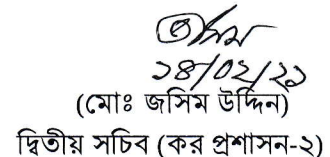 ১৪/০২/২১
(মোঃ জসিম উদ্দিন)
দ্বিতীয় সচিব (কর প্রশাসন-২)